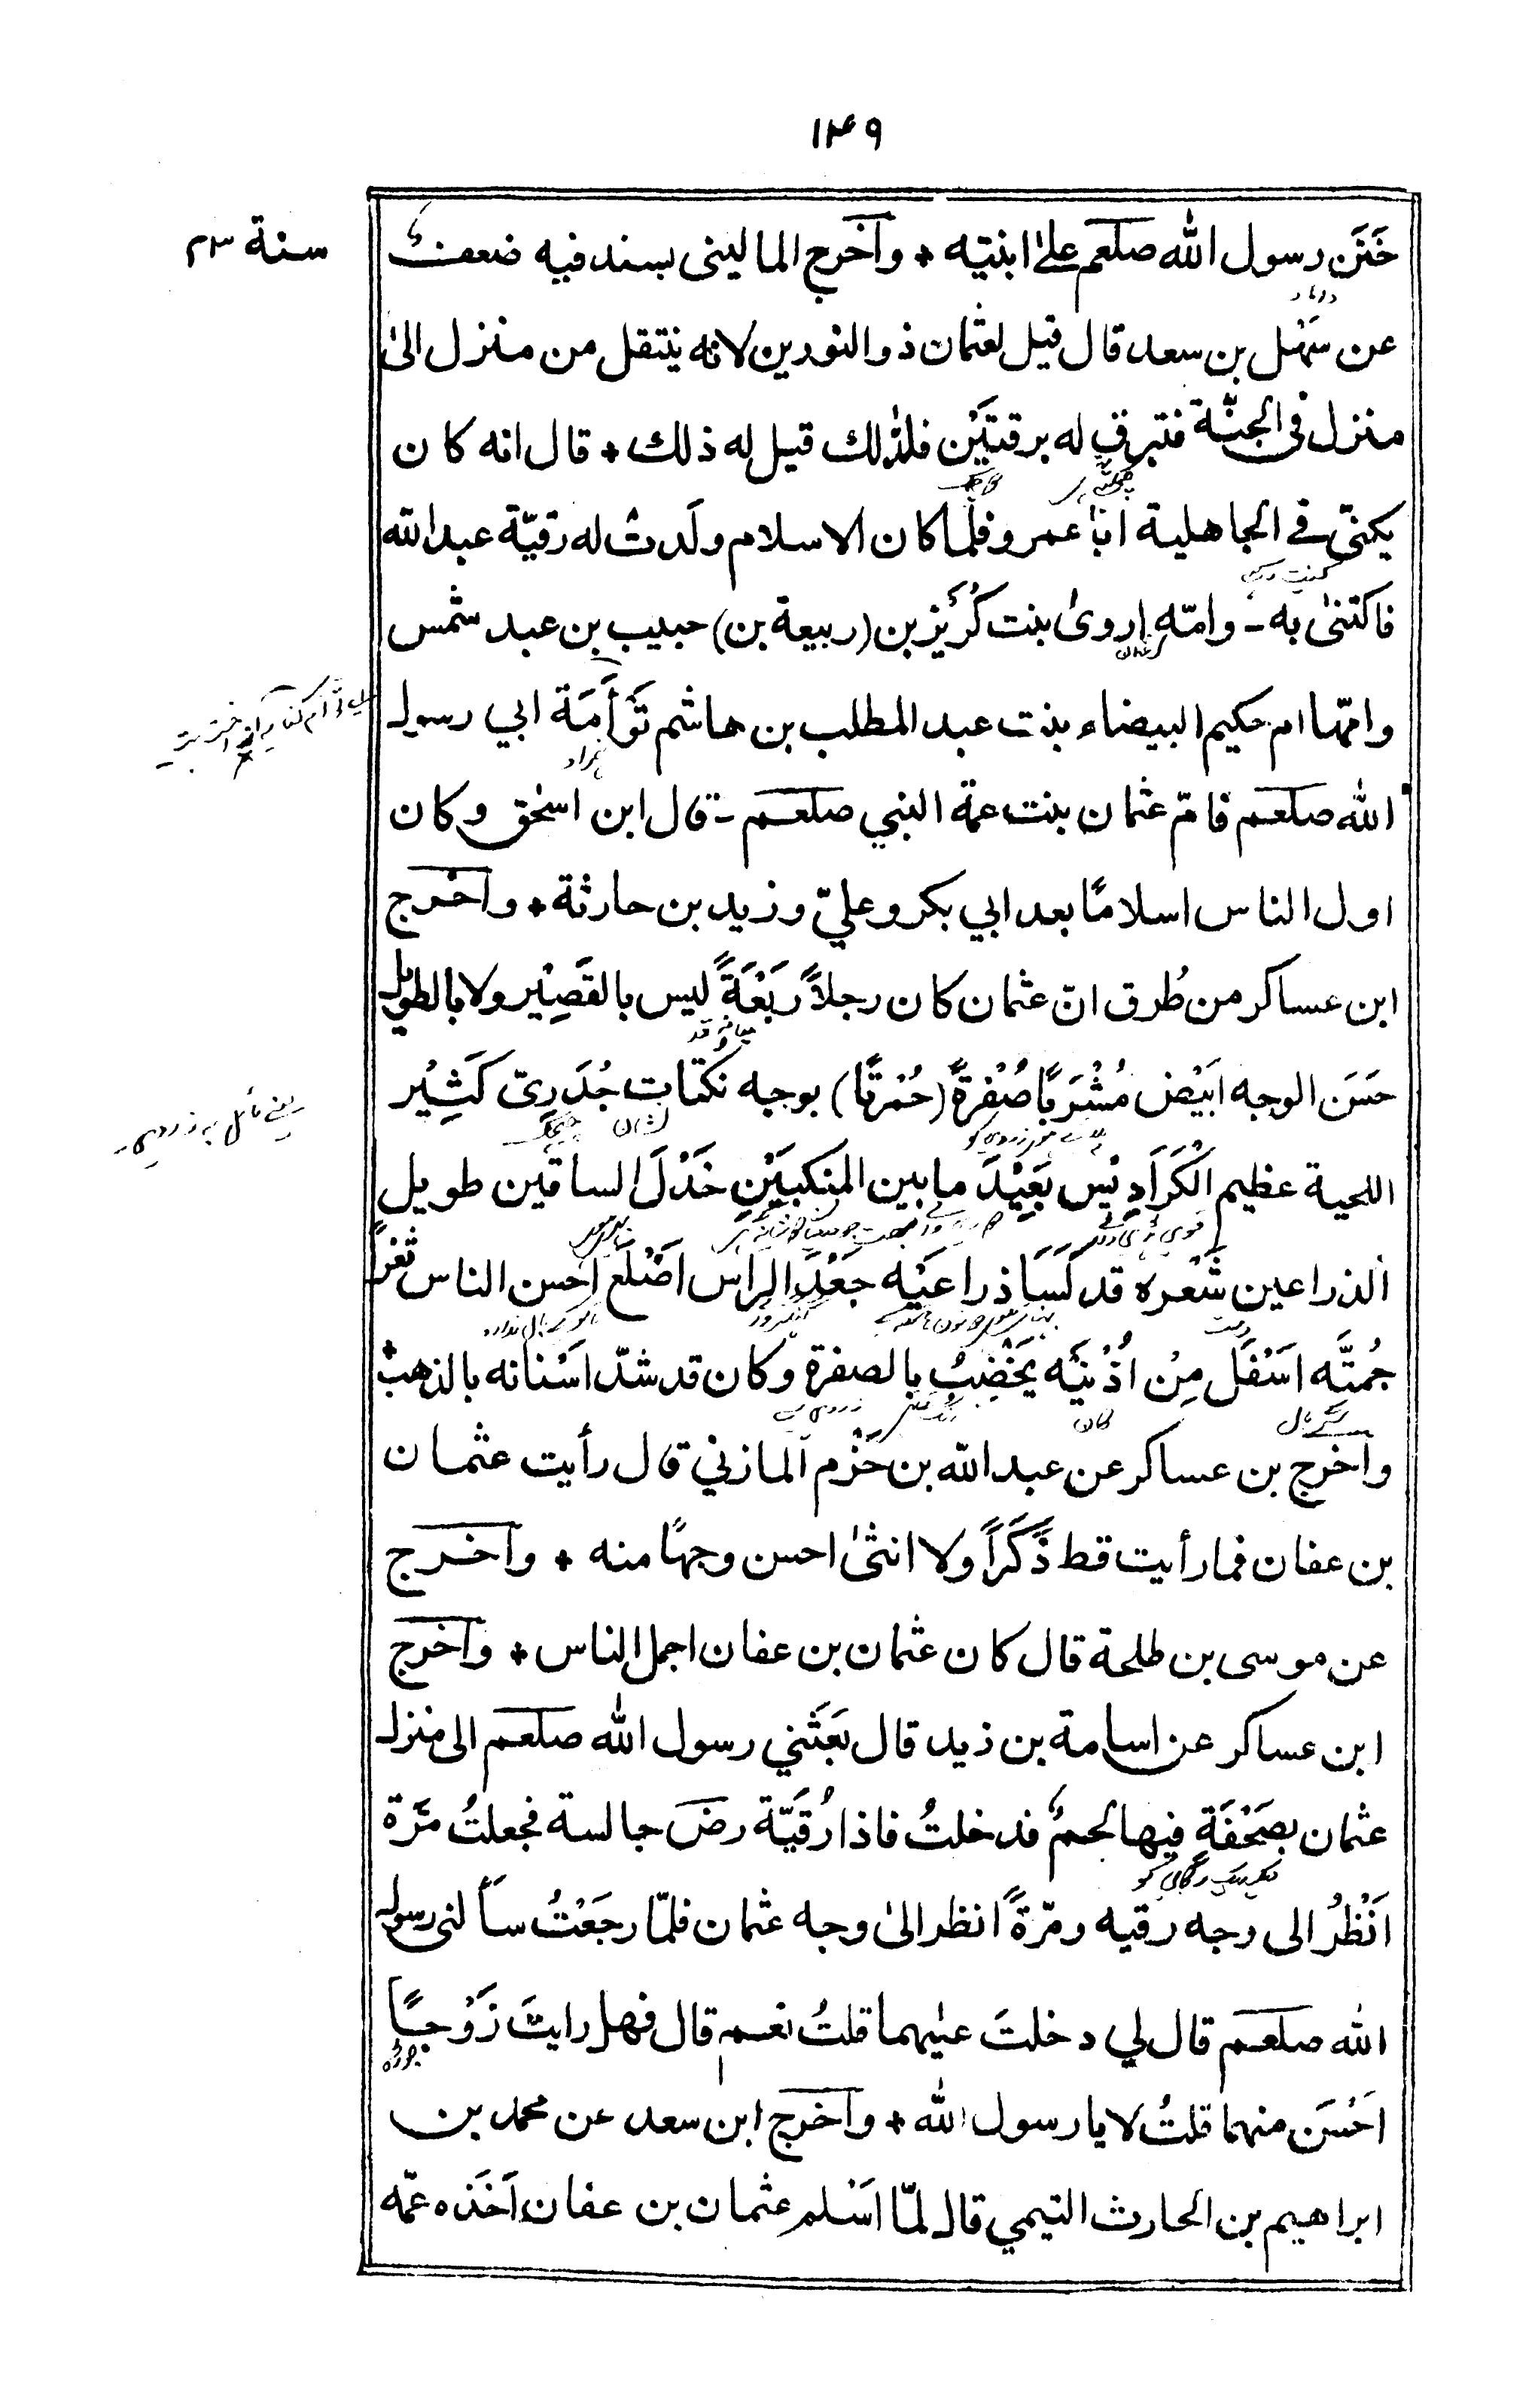 ۱۴۹
سنة ۲۳
خَتَن رسول الله صلعم علىٰ ابنتيه * وأخرج الماليني بسند فيه ضعفٌ
عن سَهْل بن سعد قال قيل لعثمان ذو النورين لانه ينتقل من منزل الىٰ
منزل في الجنّة فتبرق له برقتَيْن فلذٰلك قيل له ذلك * قال انه كان
يكنىّ في الجاهلية أبا عمرو فلما كان الاسلام ولَدت له رقيّة عبد الله
فاكتنىٰ به - وامّه اروىٰ بنت كُرَيْز بن (ربيعة بن) حبيب بن عبد شمس
وامّها ام حكيم البيضاء بنت عبد المطلب بن هاشم تَوْأَمَة ابي رسول
الله صلعم فامّ عثمان بنت عمة النبي صلعم - قال ابن اسحٰق وكان
اول الناس اسلامًا بعد ابي بكر وعليّ وزيد بن حارثة * وأخرج
ابن عساكر من طُرق انّ عثمان كان رجلاً رَبْعَةً ليس بالقَصِيْر ولا بالطويل
حَسَن الوجه ابَيْض مُشْرَبًا صُفْرةً (حُمْرتًا) بوجهه نكتات جُدَرِيّ كَثِيْر
اللحية عظيم الْكَرَادِيْس بَعِيْدَ ما بين المنكبَيْنِ خَدْلَ الساقين طويل
الذراعين شَعْره قد كَسَا ذراعَيْه جَعْدَ الراس اَصْلَع احسن الناس ثغرًا
جُمتَّه اسَفَل مِنْ اُذْنيَه يَخْضِبُ بالصفرة وكان قد شدّ اسْنانه بالذهب *
وأخرج بن عساكر عن عبد الله بن حَزْم المازني قال رأيت عثمان
بن عفان فما رأيت قط ذَكَرًا ولا انثىٰ احسن وجهًا منه * وأخرج
عن موسى بن طلحة قال كان عثمان بن عفان اجمل الناس * وأخرج
ابن عساكر عن اسامة بن زيد قال بَعَثَني رسول الله صلعم الى منزل
عثمان بصَحْفَةٍ فيها لحمٌ فدخلتُ فاذا رُقَيّة رضَ جالسة فجعلتُ مَرَّة
اَنْظُرُ الى وجه رقيه ومرّةً انظر الىٰ وجه عثمان فلمّا رجَعْتُ سأَلنى رسول
الله صلعم قال لي دخلتَ عليهما قلتُ نعم قال فهل رايتَ زَوْجًا
احَسَن منهما قلتُ لا يا رسول الله * وأخرج ابن سعد عن محمد بن
ابراهيم بن الحارث التيمي قال لمّا اَسْلم عثمان بن عفان اَخَذه عمّه